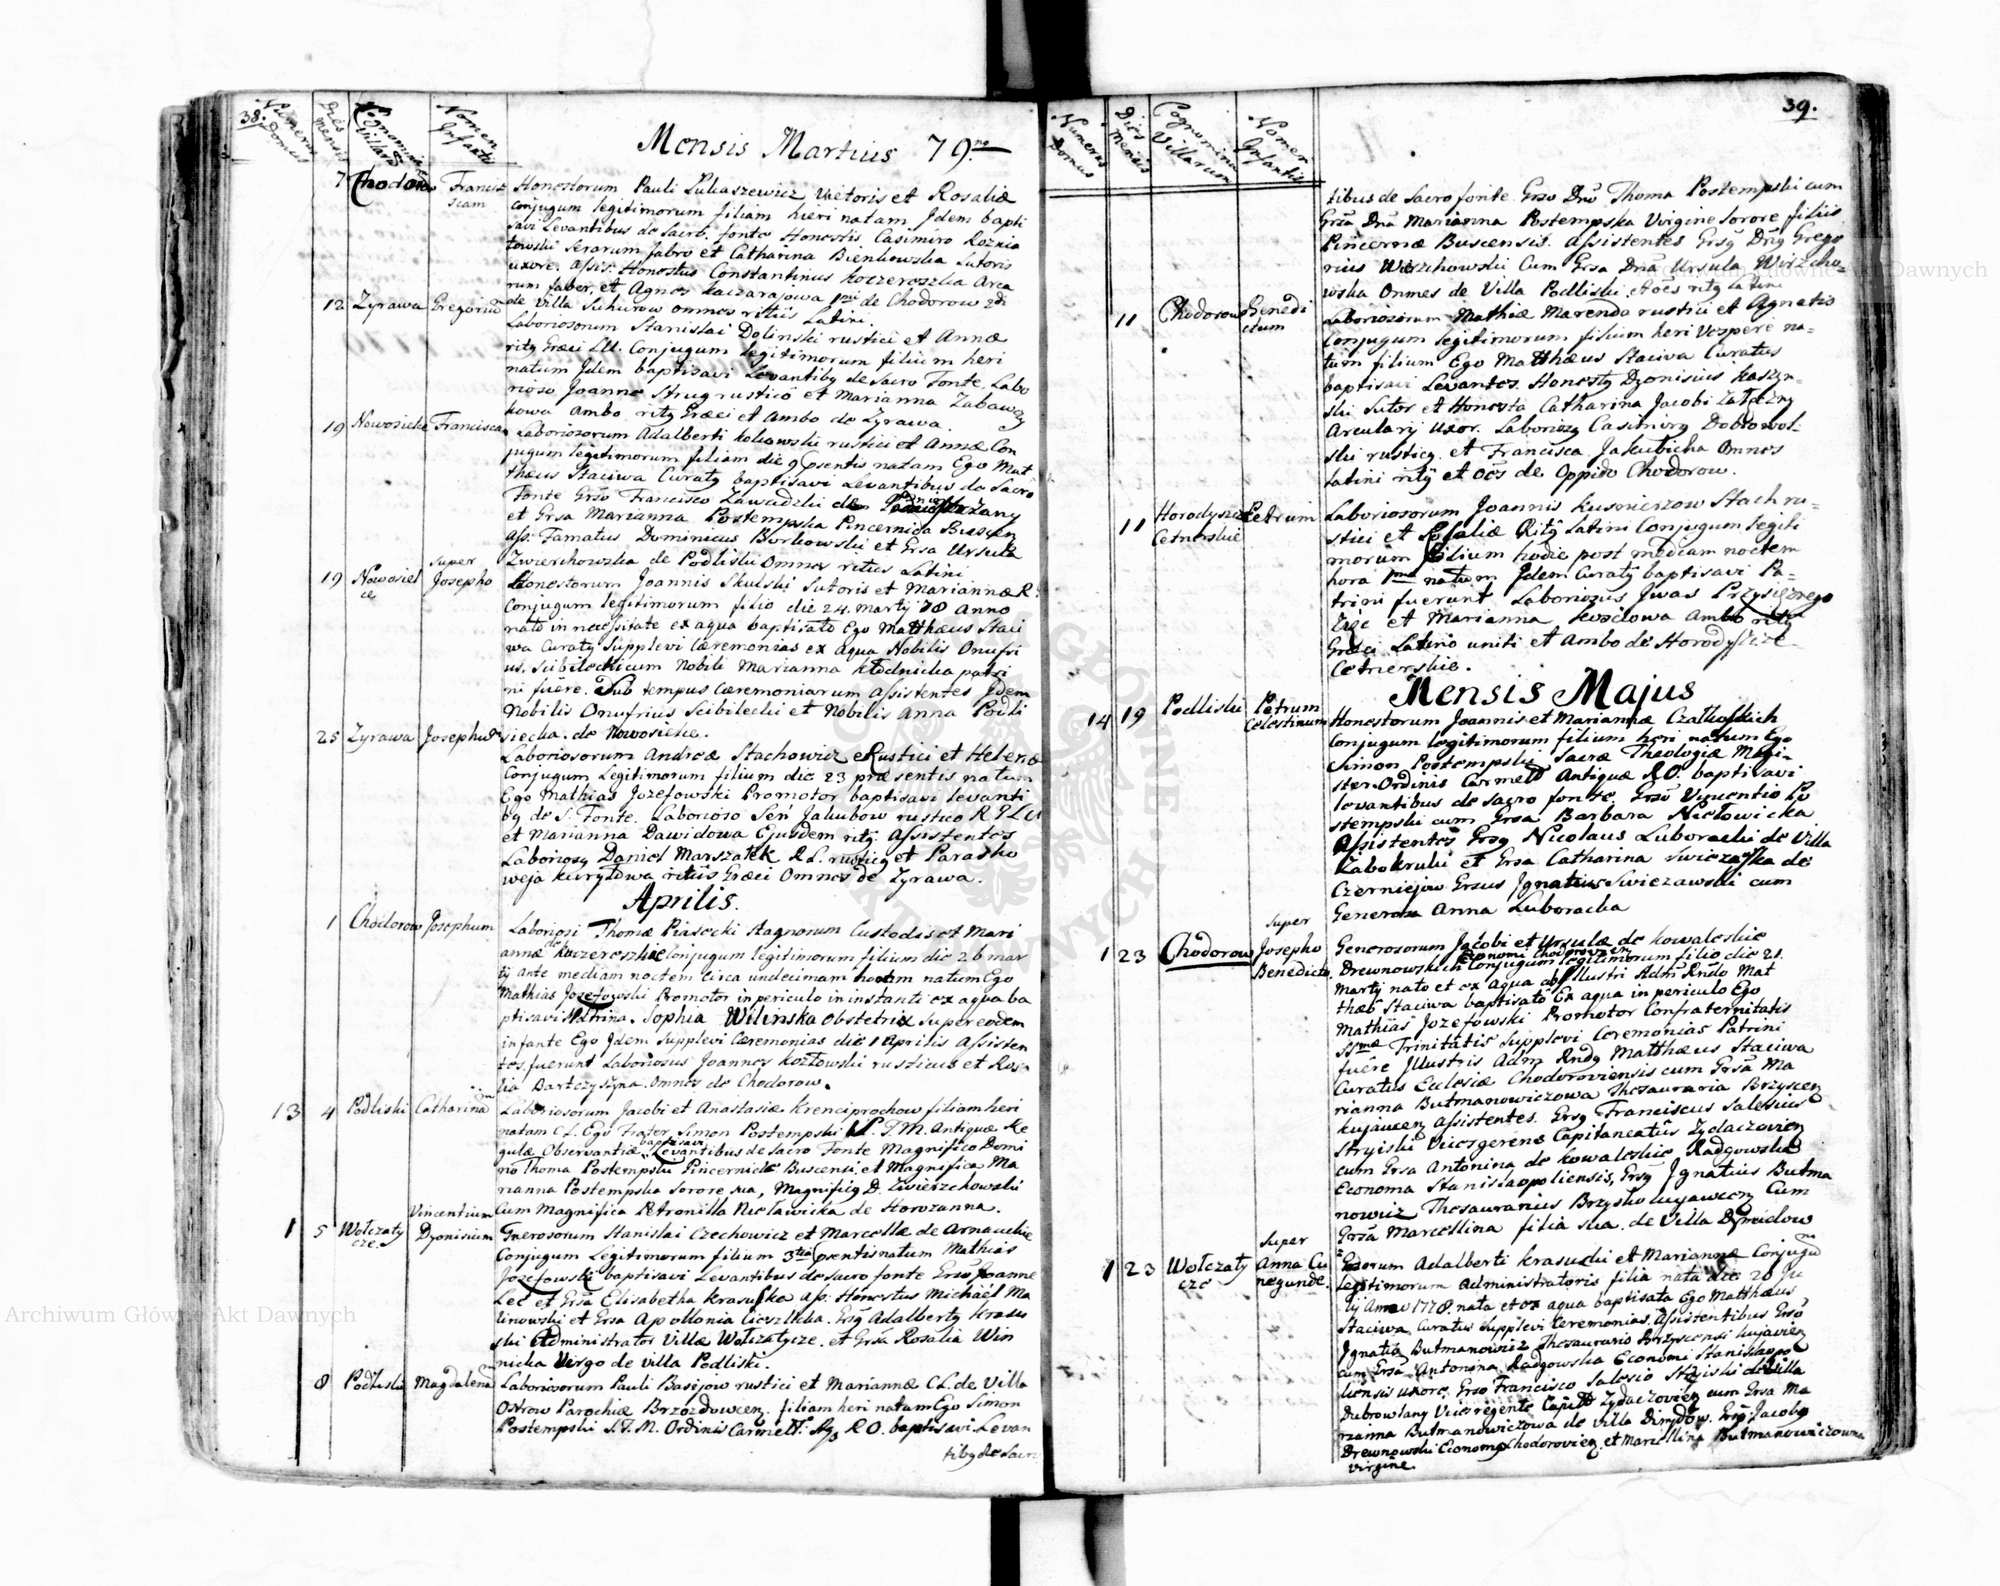 38.
Numerus Domus
Dies Mensis
Cognomina Villarum
Nomen Infantis
Mensis Martius 79.no
7 Chodorow Francis
cam
Honestorum Pauli Lukaszewicz Vietoris et Rosaliæ
conjugum legitimorum filiam hieri natam. Idem bapti
savi Levantibus de Sacro fonte Honestis. Casimiro Roznia
towski serarum fabro et Catharina Bienkowska Sutoris
uxore. Assis: Honestus Constantinus Koczeroszka Arca
rum faber, et Agnes Kaczarajowa 1mi de Chodorow 2di
de villa Suhurow omnes ritus Latini.
12 Zyrawa Gregoriu
Laboriosorum Stanislai Dolinski rustici et Annæ
ritg Græci LU. Conjugum legitimorum filium heri
natum Idem baptisavi Levantibg de Sacro Fonte. Labo
rioso Joanne Strug rustico et Marianna Zabawcz
kowa Ambo ritg Græci et Ambo de Zyrawa.
19 Nowosielce Franciscam
Laboriosorum Adalberti Kolkowski rustici et Annæ Con
jugum legitimorum filiam die 9 psentis natam Ego Mat
thæus Staciwa Curatg baptisavi Levantibus de Sacro
Fonte Grso Francisco Zawadzki de
et Grsa Marianna Postempska Pincernida Buscen
ass: Famatus Dominicus Borkowski et Grsa Ursula
Zwierchowska de Podliski Omnes ritus Latini
super
19 Nowosiel Josepho
ce
Honestorum Joannis Skulski Sutoris et Mariannæ R:
Conjugum legitimorum filio die 24. martij 78 Anno
nato in necessitate ex aqua baptisato Ego Matthæus Staci
wa Curatg Supplevi Cæremonias ex aqua Nobilis Onufri
us. Scibilecki cum Nobili Marianna Kłodnicka patri
ni fuêre. Sub tempus Cæremoniarum Assistentes Idem
Nobilis Onufrius Scibilecki et Nobilis Anna Podli
siecka. de Nowosielce.
25 Zyrawa Josephu
Laboriosorum Andreæ Stachowicz Rustici et Helenæ
Conjugum Legitimorum filium die 23 præsentis natum
Ego Mathias Jozefowski Promotor baptisavi levanti
bg de S. Fonte. Laborioso Señ Jakubow rustico R G LU
et Marianna Dawidowa Ejusdem ritg. Assistentes
Laboriosg Daniel Marszałek R L. rusticg et Parasko
weja Kuryłowa ritûs Græci Omnes de Zyrawa.
Aprilis.
1 Chodorow Josephum
Laboriosi Thomæ Piasecki stagnorum Custodis et Mari
annæ de Koczereszkie Conjugum legitimorum filium die 26 mar
tij ante mediam noctem circa undecimam horam natum Ego
Mathias Jozefowski Promotor in periculo in instanti ex aqua ba
ptisavi Matrina. Sophia Wilinska obstetrix super eodem
infante Ego Idem Supplevi Cæremonias die 1 Aprilis Assisten
tes. fuerunt Laboriosus Joannes Kozłowski rusticus et Ros
lia Bartczyszyna. Omnes de Chodorow.
13 4 Podliski Catharinam
Laboriosorum Jacobi et Anastasiæ Krenciprochow filiam heri
natam C L. Ego Frater Simon Postempski S. T. M. Antiquæ Re
gulæ Observantiæ baptisavi Levantibus de Sacro Fonte Magnifico Domi
no Thoma Postempski Pincernide Buscensi, et Magnifica Ma
rianna Postempska Sorore sua, Magnificg D. Zwierzchowski
Cum Magnifica Petronilla Niesławicka de Horozanna.
Vincentium
1 5 Wołczaty Dyonisium
cze.
Generosorum Stanislai Czechowicz et Marcellæ de Arnauckie
Conjugum Legitimorum filium 3tia psentis natum Mathias
Jozefowski baptisavi Levantibus de Sacro fonte Grso Joanne
Lec et Grsa Elisabetha Krasuska ass: Honestus Michaël Ma
linowski et Grsa Apollonia Cieszłka. Grsg Adalbertg Krasu
ski Administrator Villæ Wołczatycze. et Grsa Rosalia Win
nicka Virgo de villa Podliski.
8 Podliski Magdalenam
Laboriosorum Pauli Basijow rustici et Mariannæ C L. de Villa
Ostrow Parochiæ Brzozdowcen. filiam heri natam Ego Simon
Postempski S. T. M. Ordinis Carmelit. R O. baptisavi Levan
tibg de Sacr
39.
Numerus Domus
Dies Mensis
Cognomina Villarum
Nomen Infantis
tibus de Sacro fonte. Grso Dño Thoma Postempski cum
Grsa Dña Marianna Postempska Virgine sorore filiis
Pincernæ Buscensis. Assistentes Grsg Dñg Grego
rius Wirzchowski Cum Grsa Dña Ursula Wirzcho-
wska Omnes de Villa Podliski. et oēs ritg Latini
11 Chodorow Benedi
ctum
Laboriosorum Mathiæ Marenda rustici et Agnetis
Conjugum legitimorum filium heri Vespere na-
tum filium Ego Matthæus Staciwa Curatus
baptisavi Levantes. Honestg Dyonisius Kaszyn-
ski Sutor et Honesta Catharina Jacobi
Arcularij uxor. Laboriosg Casimirg Dobrowol:
ski rusticg. et Francisca Jakubicha Omnes
Latini ritg et oēs de Oppido Chodorow.
11 Horodyszcze Petrum
Cetnerskie
Laboriosorum Joannis Kusnierzow Stach ru-
stici et Rosaliæ Ritg Latini Conjugum legiti
morum filium hodie post mediam noctem
hora 1ma natum Idem Curatg baptisavi Pa-
trini fuerunt Laboriosus Iwas Przysięznego
Zięc et Marianna Kosciowa Ambo ritg
Græci Latino uniti et Ambo de Horodyszcze
Cetnerskie.
Mensis Majus
14 19 Podliski Petrum
Celestinum
Honestorum Joannis et Mariannæ Czatkoskich
Conjugum legitimorum filium heri natum Ego
Simon Postempski Sacræ Theologiæ Magi-
ster. Ordinis Carmelit Antiquæ R O. baptisavi
levantibus de Sacro fonte. Grso Vincentio Po
stempski cum Grsa Barbara Niesłowicka
Assistentes Grsg Nicolaus Luboracki de Villa
Zabokruki et Grsa Catharina Swieżawska de
Czerniejow Grsus Ignatius Swiezawski cum
Generosa Anna Luboracka
super
1 23 Chodorow Josepho
Benedicto
Generosorum Jacobi et Ursulæ de Kowaleskie
Economi Chodorovien
Drewnowskich Conjugum legitimorum filio die 21.
Martij nato et ex aqua ab Illustri Adm Rñdo Mat
thæo Staciwa baptisato Ex aqua in periculo Ego
Mathias Jozefowski Promotor Confraternitatis
SSmæ Trinitatis Supplevi Ceremonias Patrini
fuêre Illustris Adm Rndg Matthæus Staciwa
Curatus Eclesiæ Chodoroviensis cum Grsa Ma
rianna Butmanowiczowa Thesauraria Brzyscen
Kujavien Assistentes. Grsg Franciscus Salesius
Stryiski Vicesgerens Capitaneatûs Zydaczovien
cum Grsa Antonina de Kowaleskie Radgowska
Economa Stanislaopoliensis, Grsg Ignatius Butma
nowicz Thesaurarius Brzyskokujawien Cum
Grsa Marcellina filia sua. de Villa Dymidow
super
1 23 Wołczaty Anna Cu
cze negunde.
Grsorum Adalberti Krasuski et Mariannæ Conjugum
Legitimorum Administratoris filia nata die 20 Ju
lij Anno 1778. nata et ex aqua baptisata Ego Matthæus
Staciwa Curatus Supplevi Ceremonias. Assistentibus Grso
Ignatio Butmanowicz Thesaurario Brzyscensi Kujavien
cum Grsa Antonina Radgowska Economi Stanislaopo
liensis uxore. Grso Francisco Salesio Stryiski de Villa
Dubrowlany Vicesregente Capit Zydaczovien cum Grsa Ma
rianna Butmanowiczowa de villa Dmydow. Grso Jacobo
Drewnowski Economo Chodorovien et Marcellina Butmanowiczowna
virgine.
Archiwum Główne Akt Dawnych
Archiwum Główne Akt Dawnych